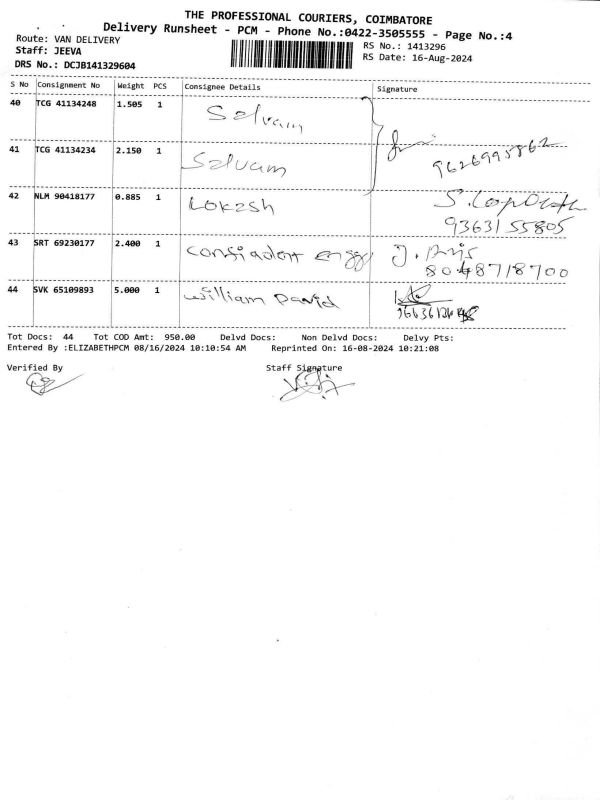 THE PROFESSIONAL COURIERS, COIMBATORE
Delivery Runsheet - PCM - Phone No.:0422-3505555 - Page No.:4
Route: VAN DELIVERY
RS No.: 1413296
Staff: JEEVA
RS Date: 16-Aug-2024
DRS No.: DCJB141329604
S No Consignment No Weight PCS Consignee Details Signature
40 TCG 41134248 1.505 1 Selvam
41 TCG 41134234 2.150 1 Selvam 9626995862
42 NLM 90418177 0.885 1 Lokesh
9363155805
43 SRT 69230177 2.400 1
8048718700
44 SVK 65109893 5.000 1 William David
Tot Docs: 44 Tot COD Amt: 950.00 Delvd Docs: Non Delvd Docs: Delvy Pts:
Entered By :ELIZABETHPCM 08/16/2024 10:10:54 AM Reprinted On: 16-08-2024 10:21:08
Verified By Staff Signature